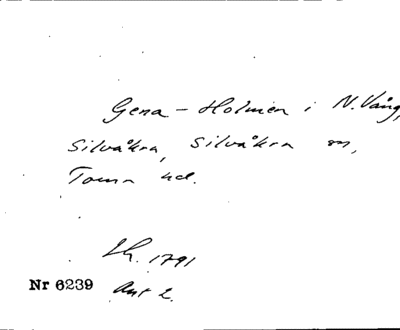 Gena-Holmen i N. Vång,
Silvåkra, Silvåkra sn,
Torna hd.
Lh. 1791
Nr 6239 Akt 2.